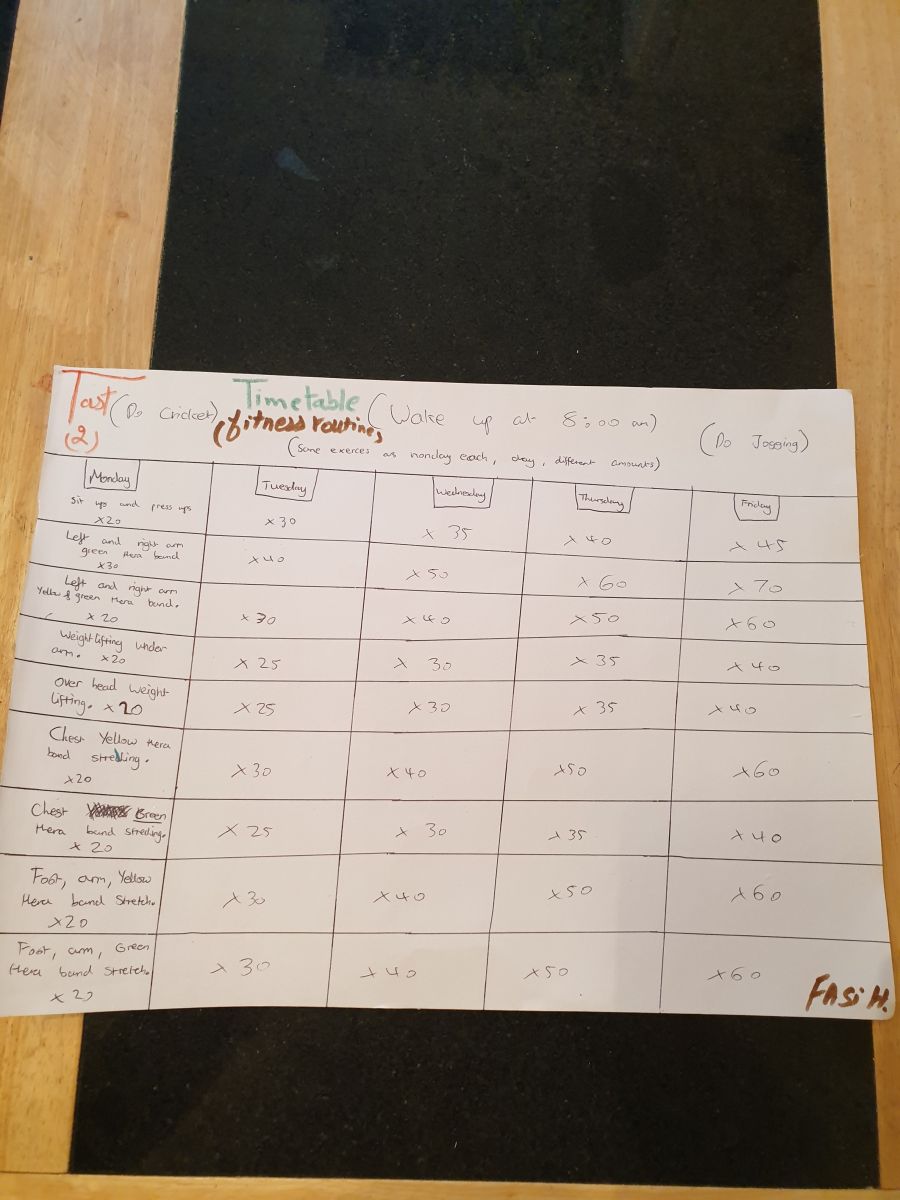 Tast (Do Cricket) Timetable (Wake up at 8:00 am)
(2) (fitness routine) (Do Jogging)
(Same exerces as monday each, day, different amounts)
Monday Tuesday Wednesday Thursday Friday
Sit ups and press ups
x20 x30 x 35 x 40 x 45
Left and right arm
green thera band
x30 x40 x50 x 60 x 70
Left and right arm
Yellow & green thera band.
x 20 x30 x40 x50 x60
Weight lifting under
arm. x20 x 25 x 30 x 35 x 40
Over head weight
lifting. x20 x25 x30 x 35 x40
Chest Yellow thera
band streching.
x20 x30 x40 x50 x60
Chest Green
thera band streching.
x 20 x 25 x 30 x35 x 40
Foot, arm, Yellow
thera band Stretch.
x20 x30 x40 x50 x60
Foot, arm, Green
thera band Stretch.
x 20 x 30 x40 x50 x60
FASiH.